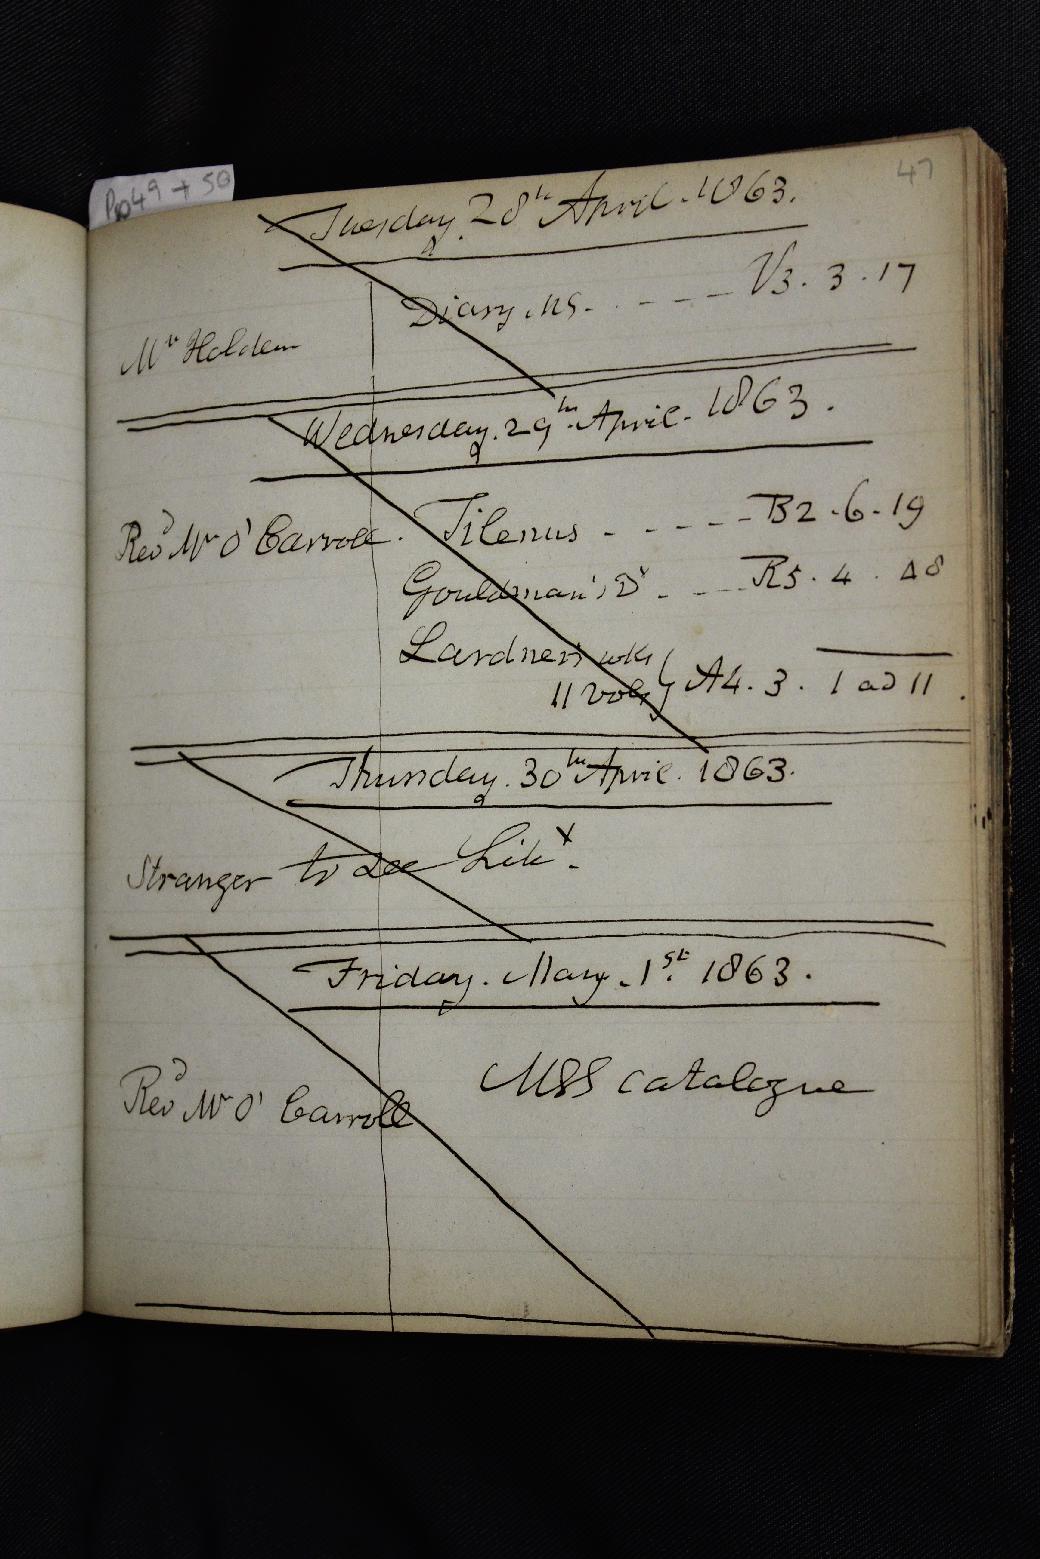 Pp 49 + 50
47
Tuesday. 28th April. 1863.
Diary. MS. - - - - V3. 3. 17
Mr Holden
Wednesday. 29th April. 1863.
Revd Mr O'Carroll. Tilenus - - - - - B2. 6. 19
Gouldman's Dy - - - - R5. 4. 48
Lardner's wks
11 vols } A4. 3. 1 ad 11.
Thursday. 30th April. 1863.
Stranger to see Liby.
Friday. May. 1st. 1863.
MSS catalogue
Revd Mr O'Carroll